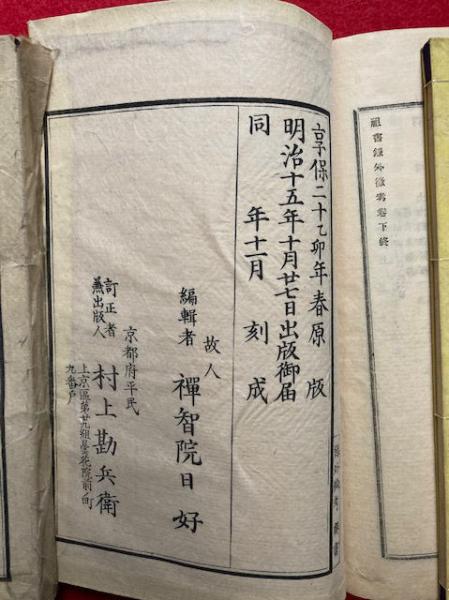 祖書録外微考卷下終
享保二十乙卯年春原版
明治十五年十月廿七日出版御届
同年十一月刻成
故人
編輯者 禪智院日好
京都府平民
訂正者
兼出版人 村上勘兵衛
上京區第廿九組曇花院前ノ町
九番戸